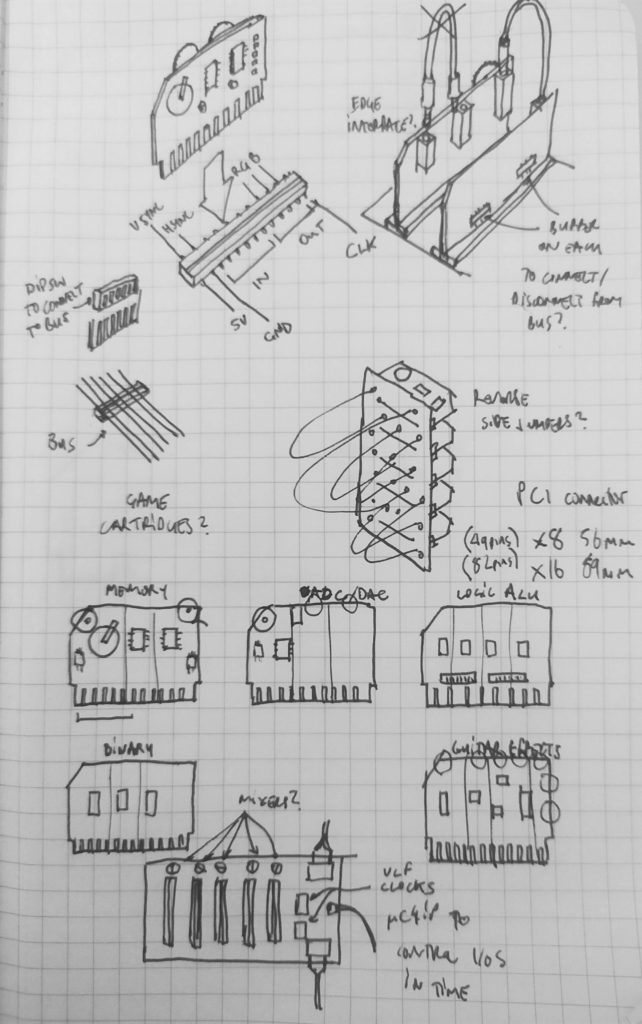 EDGE
INTERFACE?
RGB
VSYNC
HSYNC
OUT
CLK
IN
5V
GND
BUFFER
ON EACH
TO CONNECT/
DISCONNECT FROM
BUS?
DIPSW
TO CONNECT
TO BUS
BUS
REVERSE
SIDE JUMPERS?
GAME
CARTRIDGES?
PCI CONNECTOR
(49pins) x8 56mm
(82pins) x16 89mm
MEMORY
ADC/DAC
LOGIC ALU
BINARY
GUITAR EFFECTS
MIXERS?
VLF
CLOCKS
TO
CONTROL
IN TIME